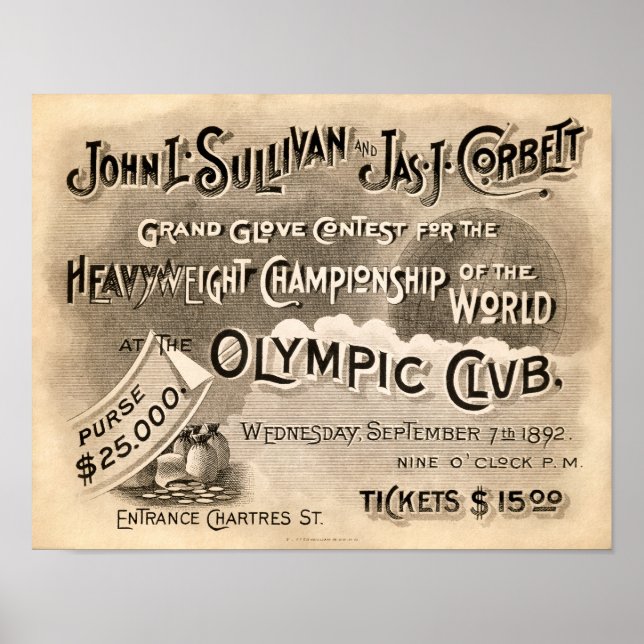 JOHN L. SULLIVAN AND JAS. J. CORBETT
GRAND GLOVE CONTEST FOR THE
HEAVYWEIGHT CHAMPIONSHIP OF THE WORLD
AT THE OLYMPIC CLVB.
PURSE
$25.000.
WEDNESDAY, SEPTEMBER 7th 1892.
NINE O'CLOCK P. M.
TICKETS $15 00
ENTRANCE CHARTRES ST.